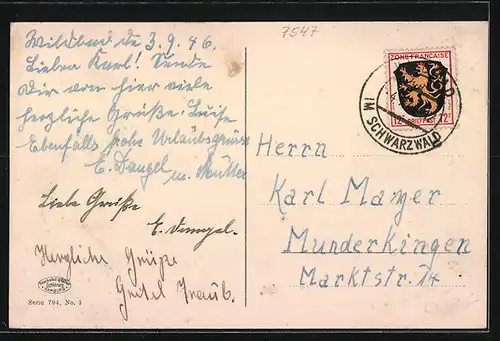 Wildbad, de 3.9.46.
Lieber Karl! Sende
Dir von hier viele
herzliche Grüße. Luise
Ebenfalls frohe Urlaubsgrüsse
E. Dangel m. Mutter
Liebe Grüße
E. Dangel.
Herzliche Grüße
Gretel Traub.
Serie 794, No. 3
7547
ZONE FRANÇAISE
12 BRIEFPOST 12
IM SCHWARZWALD
Herrn
Karl Mayer
Munderkingen
Marktstr. 14